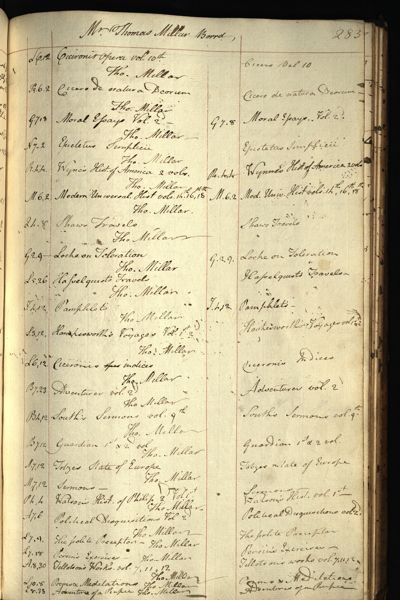 Mr. Thomas Millar Borrd, 283
Ciceronis Opera vol. 10th Cicero Vol 10
Tho. Millar
R.6.2 Cicero de natura Deorum Cicero de natura Deorum
Tho. Millar
G.7.8 Moral Essays Vol. 2 G.7.8 Moral Essays. Vol. 2.
Tho. Millar
N.7.2 Epictetus Simplicii Epictetus Simplicii
Tho. Millar
Wynne's Hist of America 2 vols. Wynne's Hist of America 2 vols
Tho. Millar
M.6.2 Modern Universal Hist vols. 14th, 16, 18th M.6.2 Mod. Univ. Hist vols. 14th, 16th, 18th
Tho. Millar.
Shaws Travels Shaws Travels
Tho. Millar
G.2.9 Locke on Toleration G.2.9. Locke on Toleration
Tho. Millar
L.5.26 Hasselquists Travels Hasselquists Travels
Tho. Millar
Pamphlets Pamphlets
Tho. Millar
Hawkesworth's Voyages Vol. Hawkesworth's Voyages vol
Tho. Millar
L.6.12 Ciceronis indices Ciceronis Indices
Tho. Millar
B.7.23 Adventurer vol. 2 Adventurer vol. 2
Tho. Millar
South's Sermons vol. 9th South's Sermons vol 9th
Tho. Millar
B.7.12 Guardian 1st & 2d vol Guardian 1st & 2 vol
Tho. Millar
A.7.12 State of Europe State of Europe
Tho. Millar
M.7.12 Sermons Sermons
Watson's Hist. of Philip 2 Vol. 1st Watson's Hist. vol. 1st
Tho. Millar
A.7.6 Political Disquisitions Vol 2 Political Disquisitions vol 2
Tho. Millar
The polite Preceptor The polite Preceptor
Tho. Millar
Exercise Exercise
Tho. Millar
Tillotsons Works vol. 7, 11, 12 Tillotsons works vol. 7, 11, 12
Tho. Millar
Meditations Tho. Millar Meditations
Adventures of a Rupee Tho. Millar Adventures of a Rupee